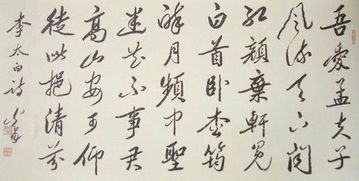 吾愛孟夫子
風流天下聞
紅顏棄軒冕
白首卧松雲
醉月頻中聖
迷花不事君
高山安可仰
徒此挹清芬
李太白詩